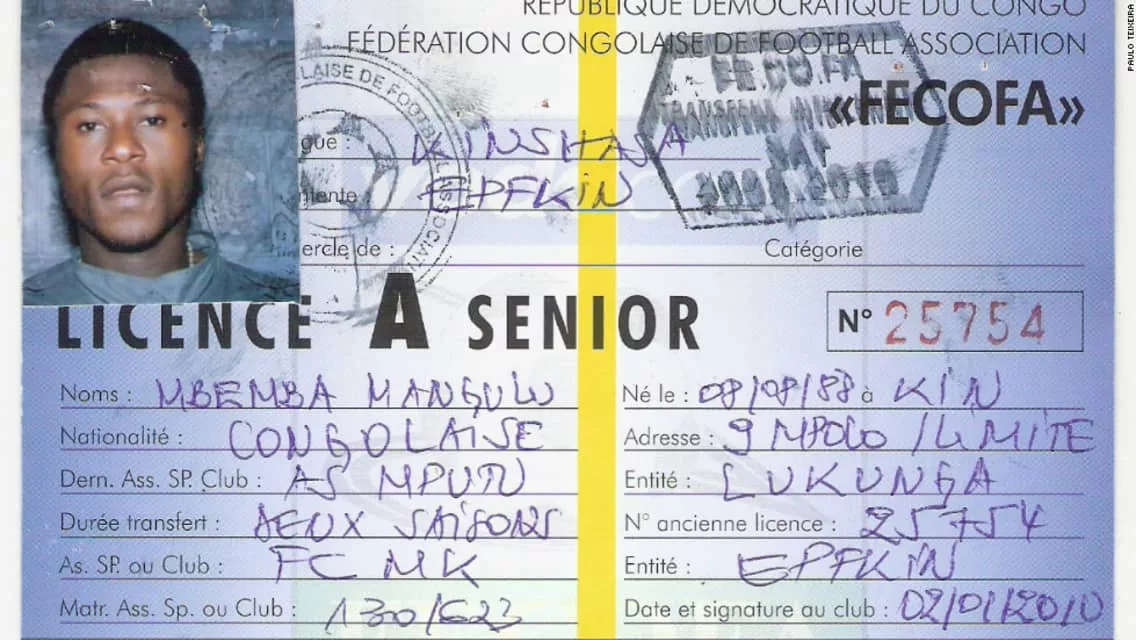 RÉPUBLIQUE DÉMOCRATIQUE DU CONGO
FÉDÉRATION CONGOLAISE DE FOOTBALL ASSOCIATION
«FECOFA»
LAISE DE FOOTBALL ASSOCIATI
FE.CO.FA
gue : KINSHASA
ntente : EPFKIN
ercle de :
Catégorie
LICENCE A SENIOR
N° 25754
Noms : MBEMBA MANGULU
Né le : 08/08/88 à KIN
Nationalité : CONGOLAISE
Adresse : 9 MPOLO /LIMITE
Dern. Ass. SP. Club : AS MPUTU
Entité : LUKUNGA
Durée transfert : DEUX SAISONS
N° ancienne licence : 25754
As. SP. ou Club : FC MK
Entité : EPFKIN
Matr. Ass. Sp. ou Club : 130/623
Date et signature au club : 02/01/2010
PAULO TEIXEIRA